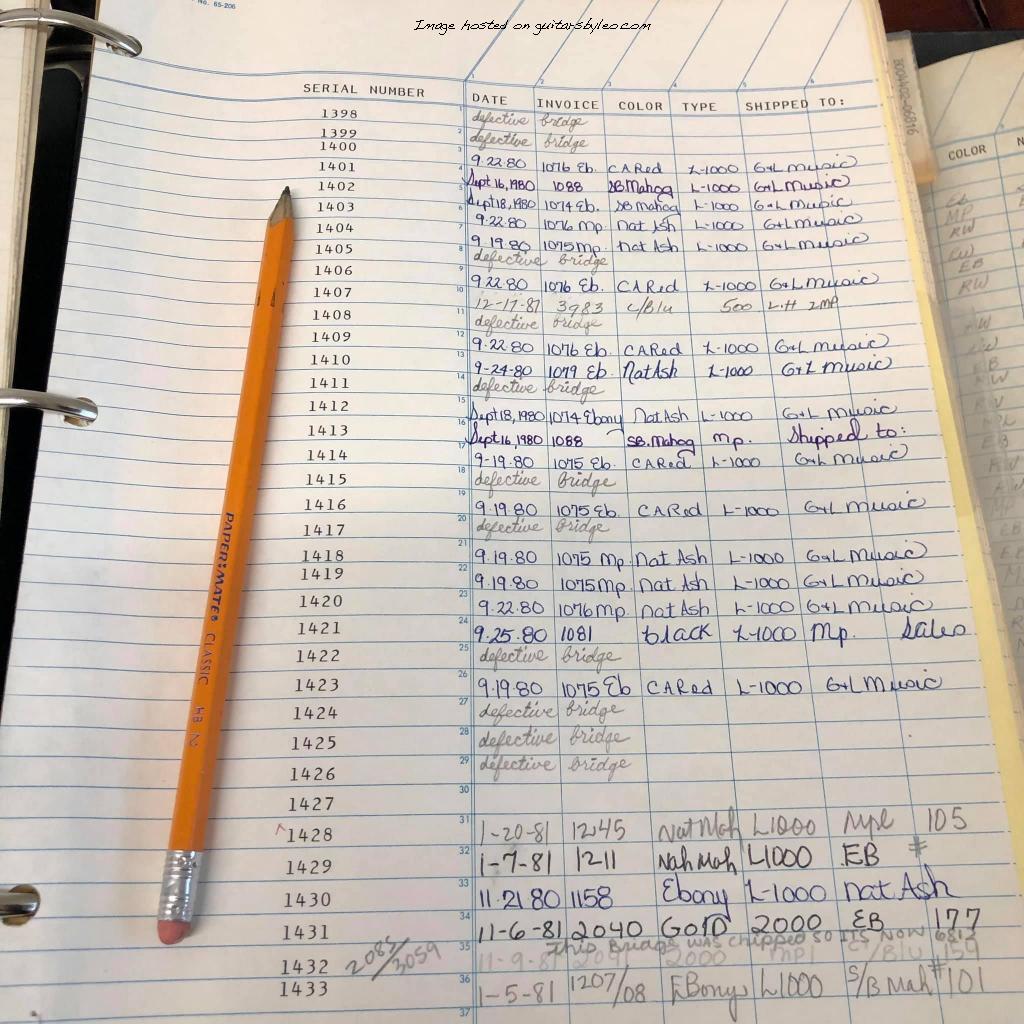 No. 65-206
Image hosted on guitarsbyleo.com
1 2 3 4 5 6
SERIAL NUMBER DATE INVOICE COLOR TYPE SHIPPED TO:
1398 defective bridge
1399 defective bridge
1400
1401 9.22.80 1076 Eb. CARed L-1000 G+L Music
1402 Sept 16, 1980 1088 SB Mahog L-1000 G+L Music
1403 Sept 18, 1980 1074 Eb. SB mahog L-1000 G+L Music
1404 9.22.80 1076 mp. nat Ash L-1000 G+L Music
1405 9.19.80 1075 mp. nat Ash L-1000 G+L Music
1406 defective bridge
1407 9.22.80 1076 Eb. CARed L-1000 G+L Music
1408 12-17-81 3983 c/Blu 500 L.H 2MP
defective bridge
1409 9.22.80 1076 Eb. CARed L-1000 G+L Music
1410 9-24-80 1079 Eb. Nat Ash L-1000 G+L Music
1411 defective bridge
1412 Sept 18, 1980 1074 Ebony Nat Ash L-1000 G+L Music
1413 Sept 16, 1980 1088 SB. Mahog mp. Shipped to:
1414 9-19.80 1075 Eb. CARed L-1000 G+L Music
1415 defective bridge
1416 9.19.80 1075 Eb. CARed L-1000 G+L Music
1417 defective bridge
1418 9.19.80 1075 mp. Nat Ash L-1000 G+L Music
1419 9.19.80 1075 mp. nat Ash L-1000 G+L Music
1420 9.22.80 1076 mp. nat Ash L-1000 G+L Music
1421 9.25.80 1081 black L-1000 mp. Sales
1422 defective bridge
1423 9.19.80 1075 Eb CARed L-1000 G+L Music
1424 defective bridge
1425 defective bridge
1426 defective bridge
1427
1428 1-20-81 1245 Nat Mah L1000 Mpl 105
1429 1-7-81 1211 Nah Mah L1000 EB #
1430 11.21.80 1158 Ebony L-1000 nat Ash
1431 11-6-81 2040 Gold 2000 EB 177
This Bridge was chipped so its now 6812
1432 2083/3059 11-9-81 2000 mpl E/Blu 159
1433 1-5-81 1207/08 EBony L1000 S/B Mah #101
PAPER:MATE® CLASSIC HB
COLOR